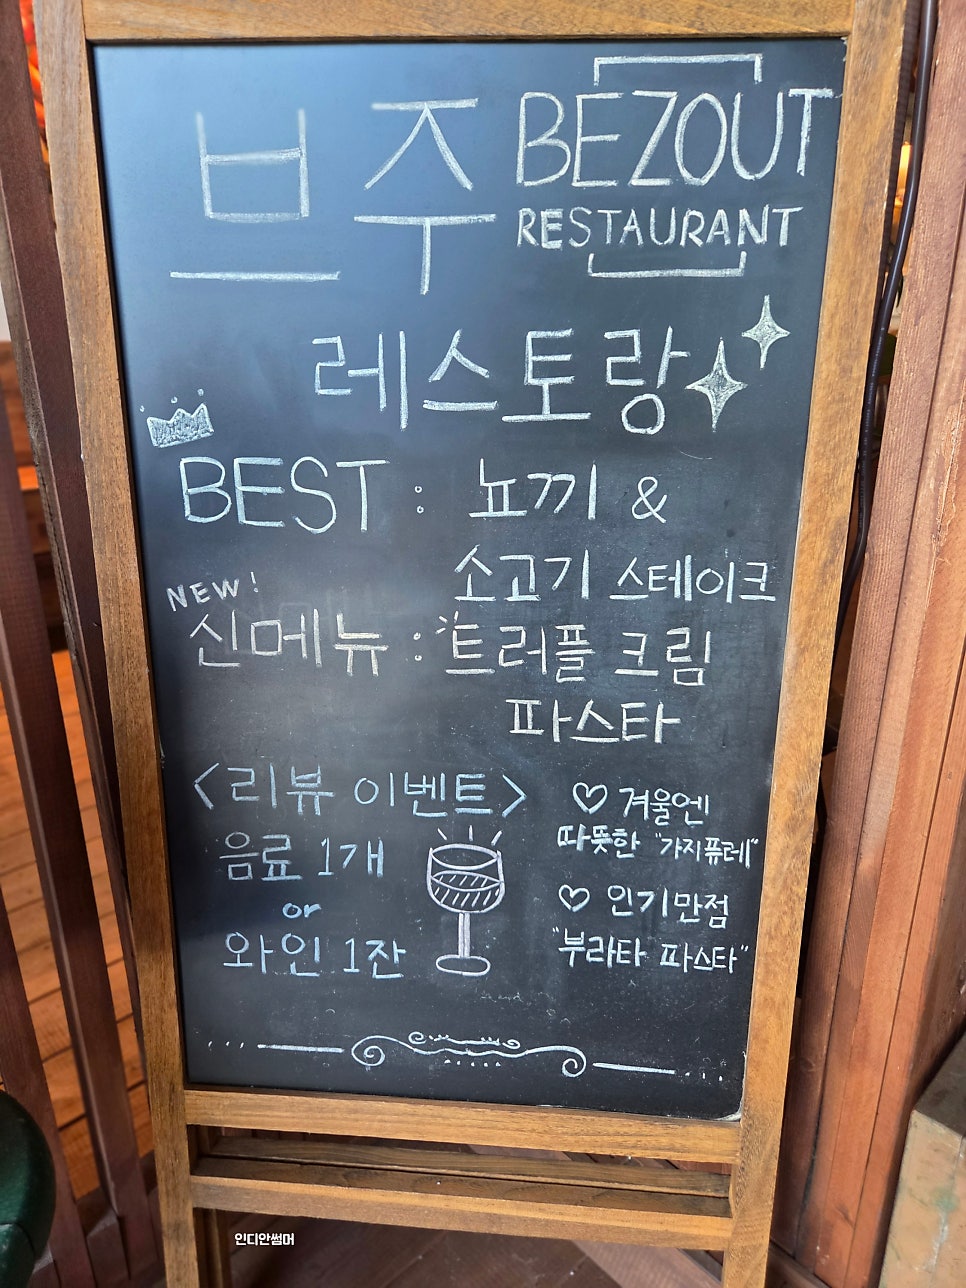 브주 BEZOUT
RESTAURANT
레스토랑
BEST : 뇨끼 &
소고기 스테이크
NEW!
신메뉴 : 트러플 크림
파스타
<리뷰 이벤트>
음료 1개
or
와인 1잔
♡ 겨울엔
따뜻한 "가지퓨레"
♡ 인기만점
"부라타 파스타"
인디안썸머